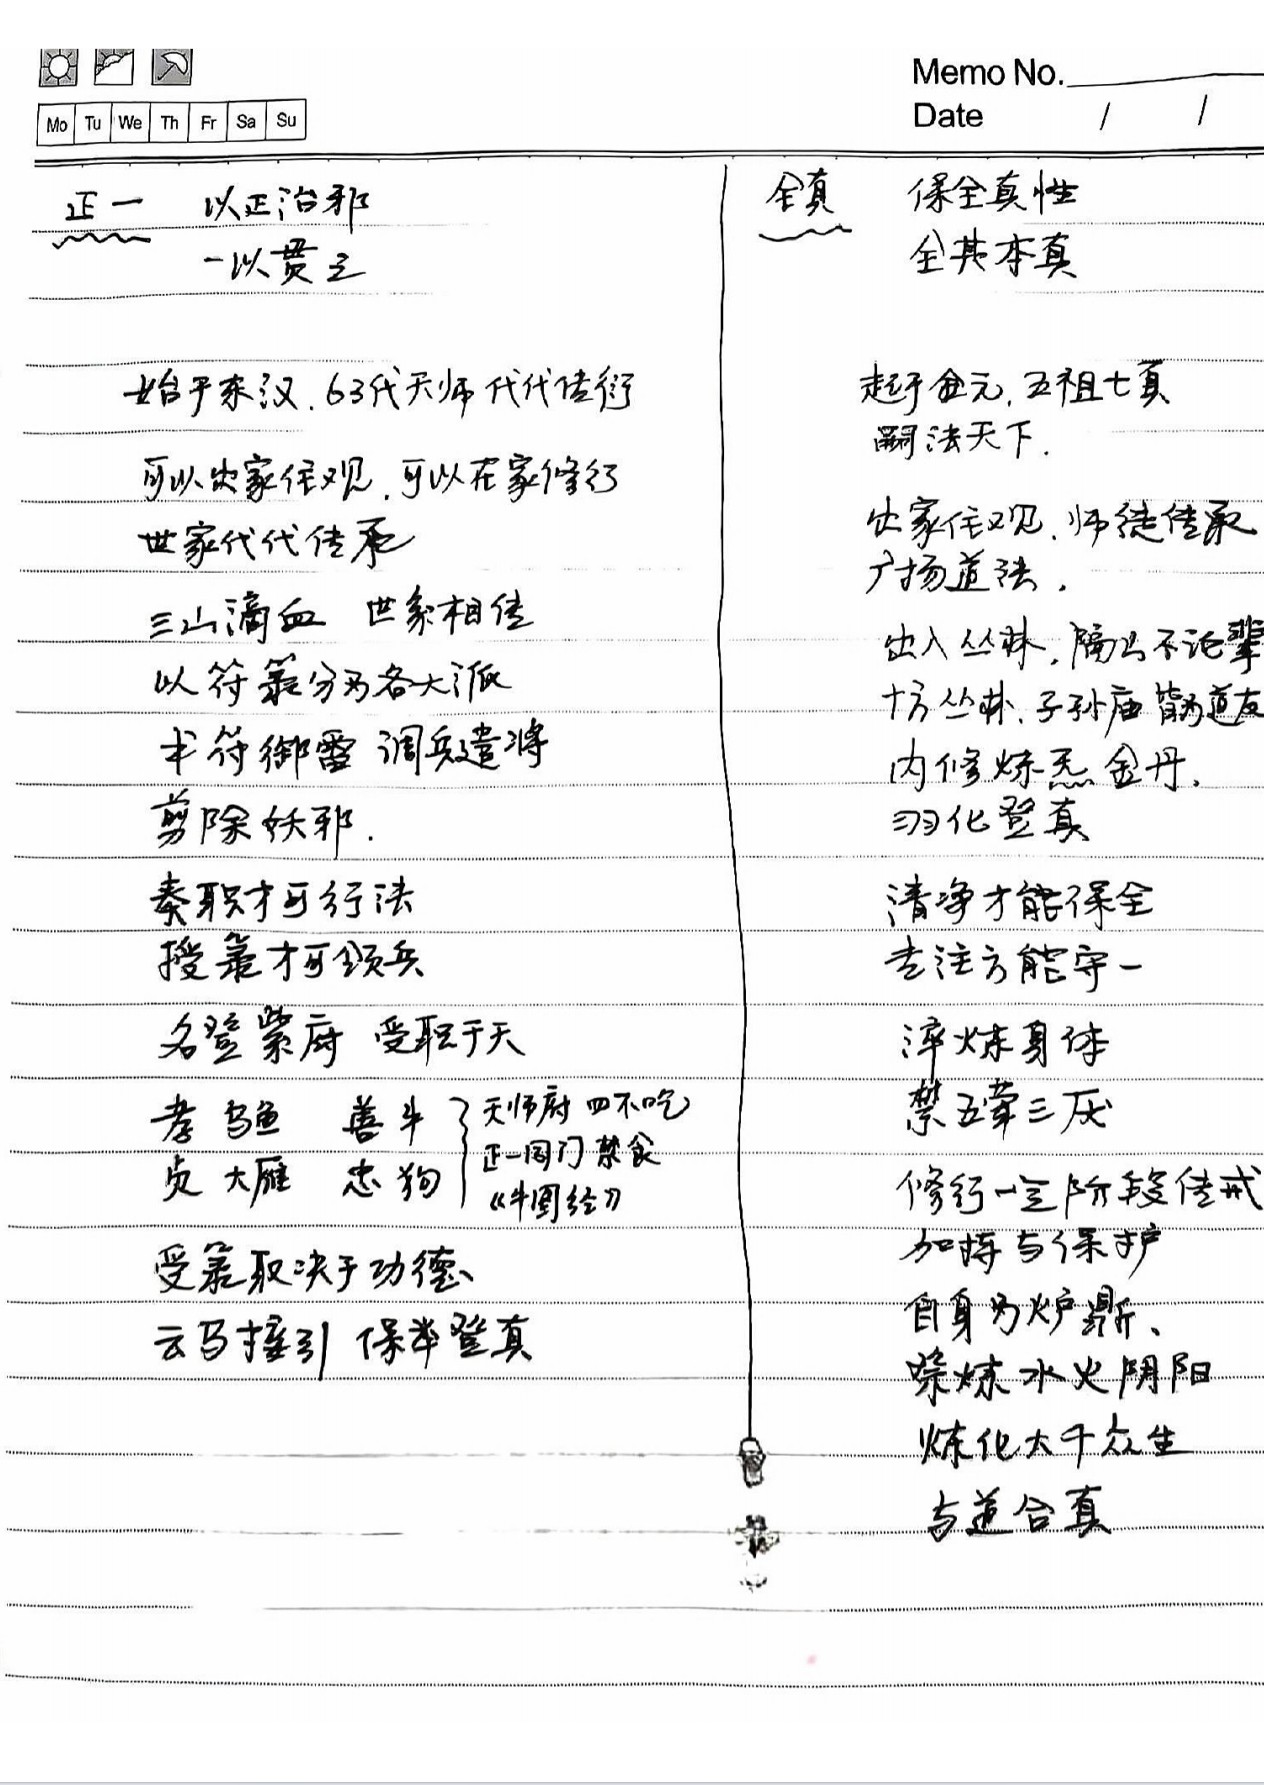 Memo No.
Mo Tu We Th Fr Sa Su
Date / /
正一 以正治邪
一以贯之
始于东汉.63代天师代代传衍
可以出家住观.可以在家修行
世家代代传承
三山滴血 世家相传
以符箓分为各大派
书符御雷 调兵遣将
剪除妖邪.
奏职才可行法
授箓才可领兵
名登紫府 受职于天
孝 乌鱼 善 牛
贞 大雁 忠 狗
天师府 四不吃
正一同门禁食
《牛图经》
受箓取决于功德
云马接引 保举登真
全真 保全真性
全其本真
起于金元,五祖七真
嗣法天下.
出家住观.师徒传承
广扬道法.
出入丛林,隔山不论辈
十方丛林.子孙庙 皆为道友
内修炼炁金丹.
羽化登真
清净才能保全
专注方能守一
淬炼身体
禁五荤三厌
修行一定阶段传戒
加持与保护
自身为炉鼎、
炼水火阴阳
炼化大千众生
与道合真